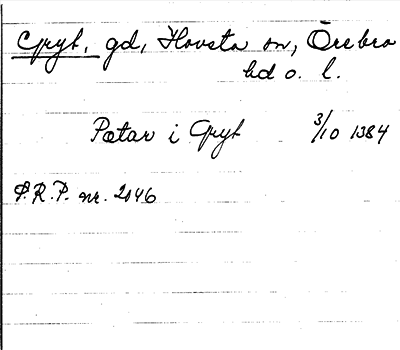 Gryt, gd, Hovsta sn, Örebro
hd o. l.
Petar i Gryt 3/10 1384
P.R.P. nr. 2046